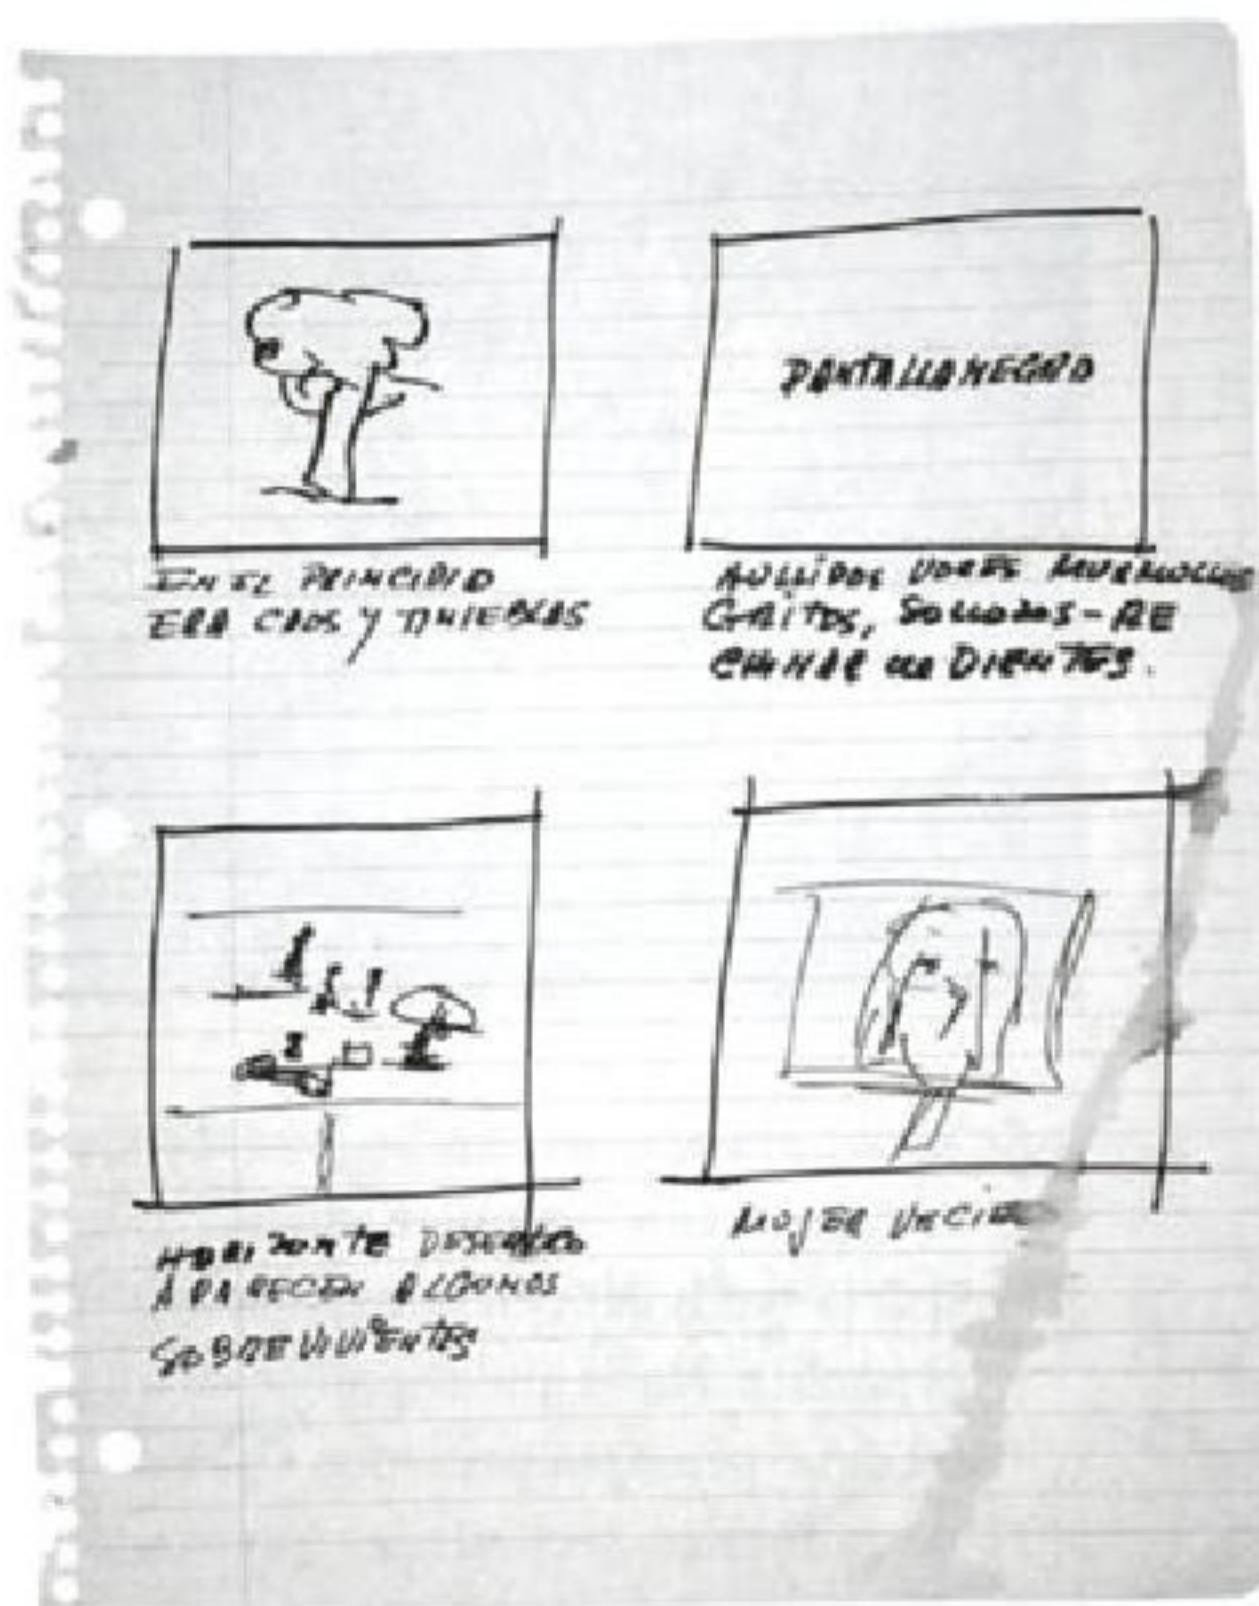 EN EL PRINCIPIO
ERA CAOS Y TINIEBLAS
PANTALLA NEGRO
AULLIDOS VOCES MURMULLOS
GRITOS, SOLLOZOS-RE
CHINAR DE DIENTES.
HORIZONTE
APARECEN ALGUNOS
SOBREVIVIENTES
MUJER